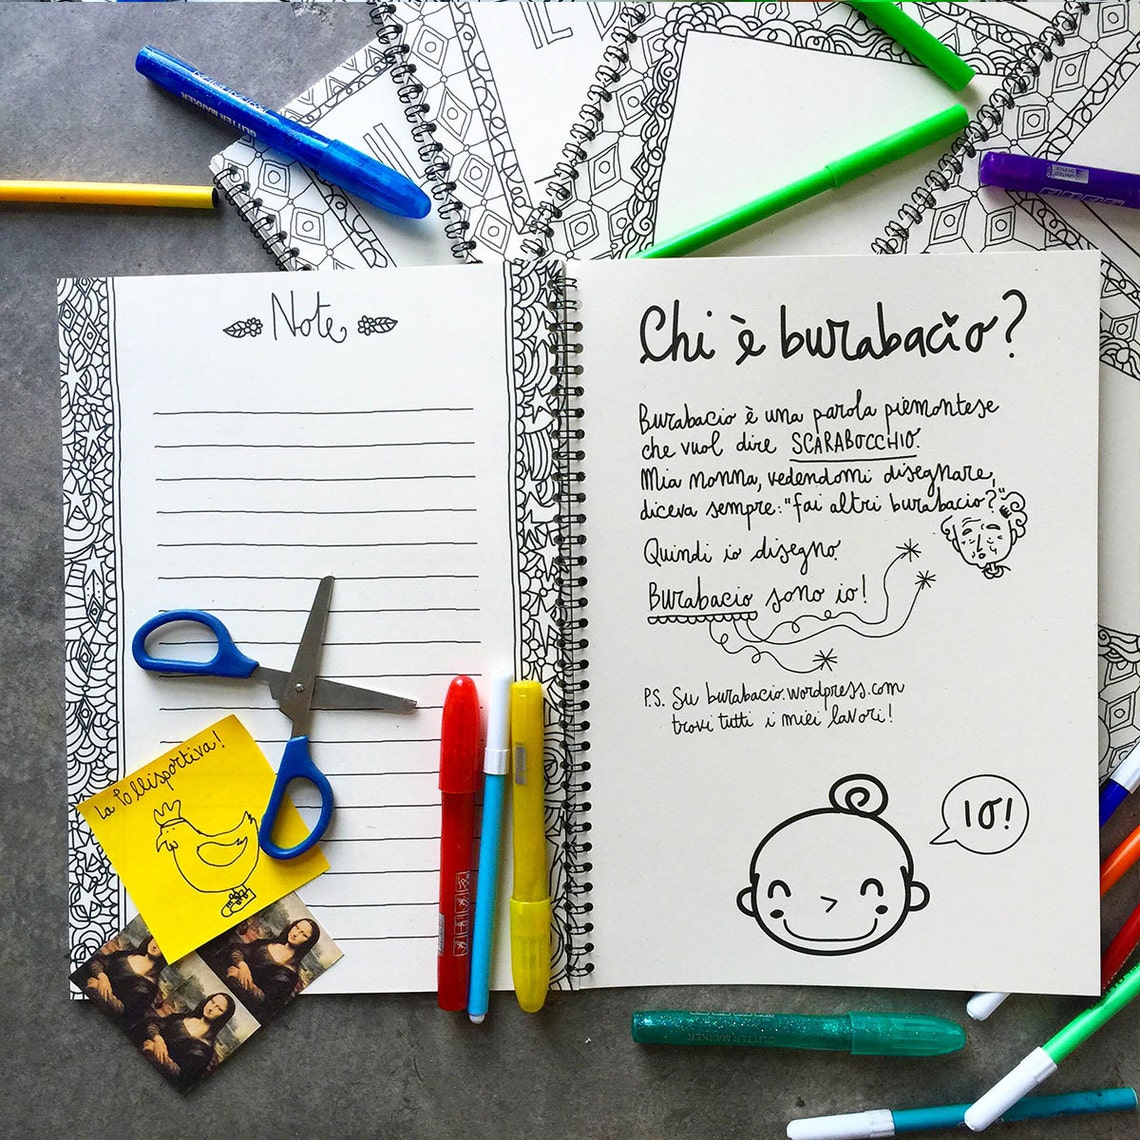 IL
IL
GLITTER MARKER
Note
Chi è burabacio?
Burabacio è una parola piemontese
che vuol dire SCARABOCCHIO.
Mia nonna, vedendomi disegnare,
diceva sempre: "fai altri burabacio?"
Quindi io disegno.
Burabacio sono io!
P.S. Su burabacio.wordpress.com
trovi tutti i miei lavori!
IO!
La Pollisportiva!
GLITTER MARKER